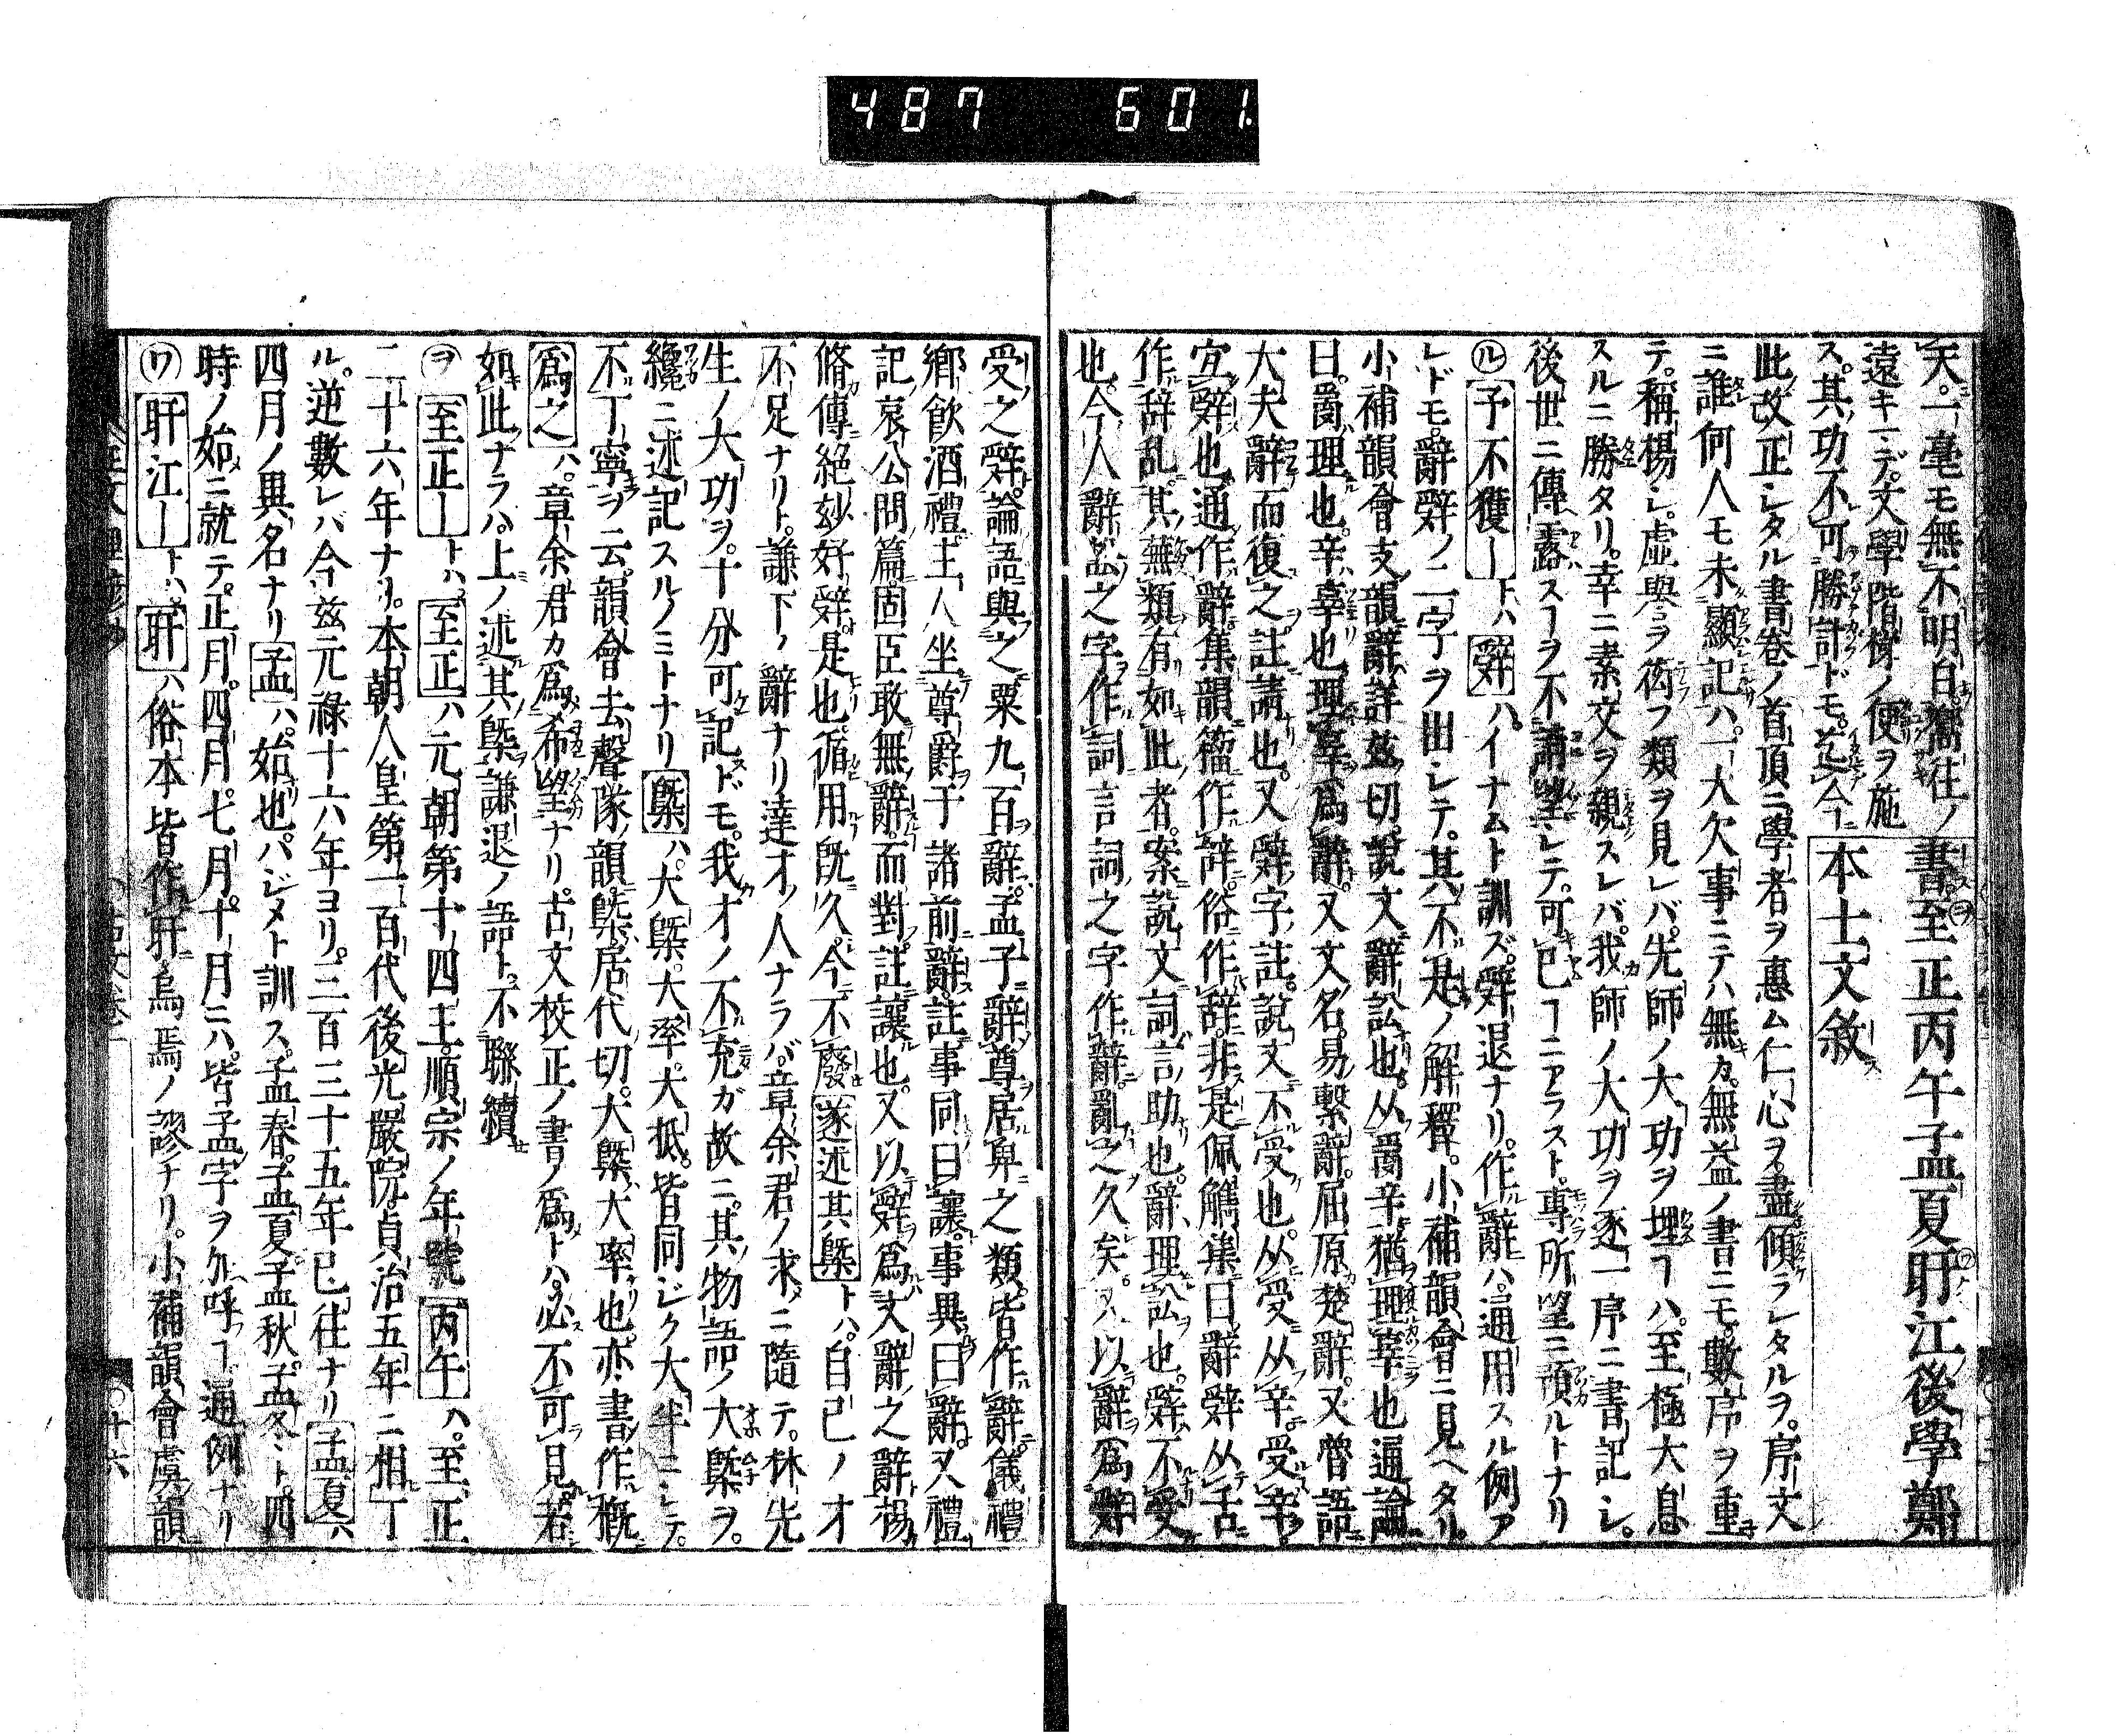 487 601.
書至正丙午孟夏盱江後學鄭
本士文敘
天。一毫モ無不明白。嚮往ノ
遠キ一デ。文學階梯ノ便ヲ施
ス。其功不可勝計ドモ。迄今ニ
此改正シタル書卷ノ首頂ニ學者ヲ惠ム仁心ヲ盡傾ラレタルヲ。序文
ニ誰何人モ未顯記ハ。一大欠事ニテハ無カ。無益ノ書ニモ數序ヲ重
テ。稱楊シ。虛與言ヲ衒フ類ヲ見レバ。先師ノ大功ヲ埋ヿハ。至極大息
スルニ勝タリ。幸ニ素文ヲ親スレバ。我師ノ大功ヲ逐一序ニ書記シ。
後世ニ傳露スヿヲ不請望シテ。可已ヿニアラスト。專所望ニ預ルトナリ
㋸予不獲ートハ辤ハ。イナムト訓ズ。辤退ナリ。作辭ハ。通用スル例ア
レドモ。辭辤ノ二字ヲ出シテ。其不是ノ解釋。小補韻會ニ見ヘタリ。
小補韻會支韻辭詳茲切。說文辭訟也。从𤔔辛猶理辜也遍論
曰。𤔔理也。辛辜也。理辜爲辭。又文名。易繫辭。屈原楚辭。又晉語
大夫辭而復之註請也。又辤字註。說文不受也。从受从辛。受辛
宜辤也。通作辭集韻籀作辝。俗作辞。非是佩觿集曰辭辤从舌
作辞乱。其蕪類有如此者。案說文詞言助也。辭理訟也。辤不受
也。今人辭訟之字作詞言詞之字作辭。亂之久矣。又以辭爲辤
受之辤。論語與之粟九百辭。孟子辭尊居卑之類。皆作辭儀禮
鄉飮酒禮主人坐尊爵于諸前辭。註事同曰讓。事異曰辭。又禮
記哀公問篇。固臣敢無辭。而對註讓也。又以辤爲文辭之辭。楊
脩傳絕玅好辤是也。循用旣久。今不廢遂述其槩トハ。自己ノ才
不足ナリト。謙下ノ辭ナリ達才ノ人ナラバ。章余君ノ求ニ隨テ。林先
生ノ大功ヲ。十分可記ドモ。我才ノ不充ガ故ニ。其物語ノ大槩ヲ。
纔ニ述記スルノミトナリ槩ハ。大槩。大率。大抵。皆同ジク大半ニシテ。
不丁寧ヲ云。韻會去聲隊韻槩居代切。大槩大率也亦書作概
爲之ハ。章余君カ爲希望ナリ。古文校正ノ書ノ爲トハ。必不可見若
如此ナラハ。上ノ述其槩謙退ノ語ト。不聯續
㋾至正ートハ。至正ハ元朝第十四主。順宗ノ年號丙午ハ。至正
二十六年ナリ。本朝人皇第一百代後光嚴院。貞治五年ニ相丁
ル。逆數レバ今茲元祿十六年ヨリ。三百三十五年已往ナリ孟夏ハ
四月ノ異名ナリ孟ハ。始也。ハジメト訓ス。孟春。孟夏孟秋。孟冬ト。四
時ノ始ニ就テ。正月。四月。七月。十月ニハ。皆孟字ヲ加呼フヿ通例ナリ
㋻盱江ートハ。盱ハ俗本皆作肝烏焉ノ謬ナリ。小補韻會虞韻
十六